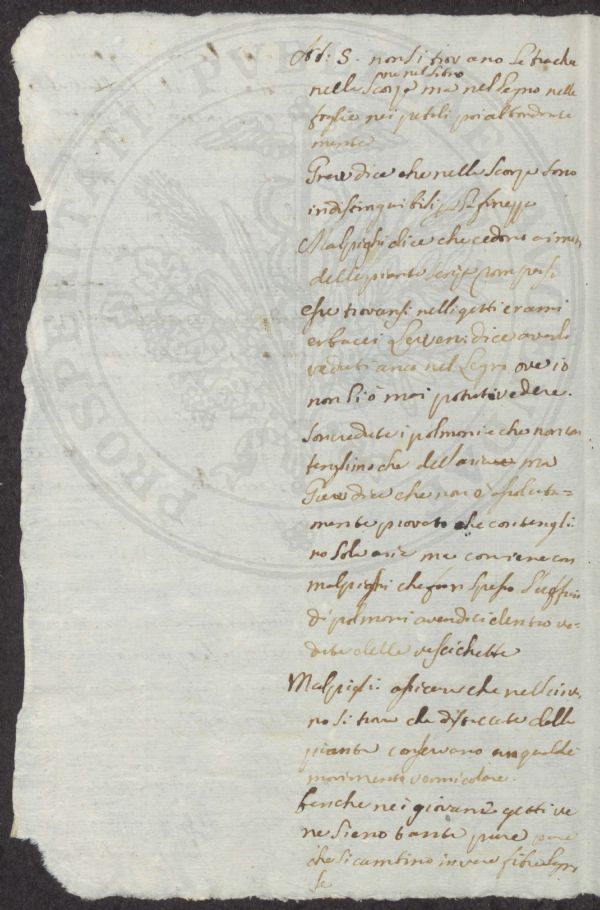 Ad: S. non si trovano le trache
ne nel libro
nelle Scorze ma nel legno nelle
foglie nei petali poi abbondante
mente
Grew dice che nelle Scorze sono
indistinguibili finezza
Malpighi dice che cedono
delle piante
che trovansi nelli getti e rami
erbacei dice averle
vedute anco nel Legno ove io
non li ò mai potuti vedere.
Son credute i polmoni e che non con
tenghino che dell'aria ma
Grew dice che non è assoluta=
mente provato che contenghi
no sola aria ma conviene con
malpighi che fan spesso l'uffizio
di polmoni avendoci dentro ve=
dute delle vescichette
Malpighi asicura che nell'inver
no si trova che distaccate dalle
piante conservano un qualche
movimento vermicolare.
benche nei giovani getti ve
ne sieno tante pure pare
che si cambino in vere fibre legno
se
PROSPERITATI